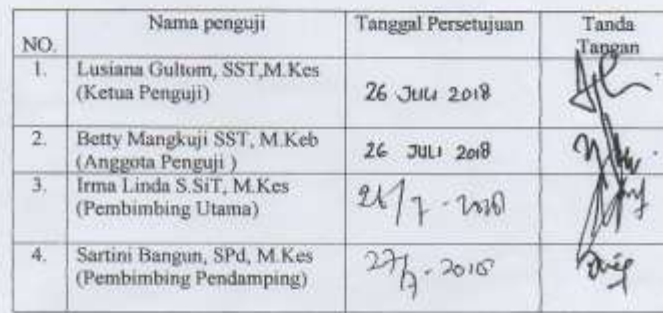 NO.
Nama penguji
Tanggal Persetujuan
Tanda
Tangan
1.
Lusiana Gultom, SST,M.Kes
(Ketua Penguji)
26 JULI 2018
2.
Betty Mangkuji SST, M.Keb
(Anggota Penguji )
26 JULI 2018
3.
Irma Linda S.SiT, M.Kes
(Pembimbing Utama)
4.
Sartini Bangun, SPd, M.Kes
(Pembimbing Pendamping)
27/7-2018